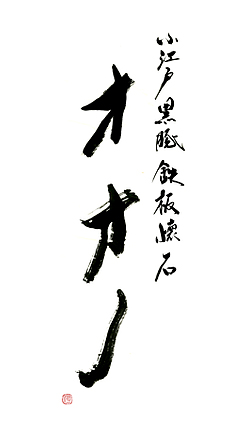 小江戸黒豚鉄板懐石
オオノ